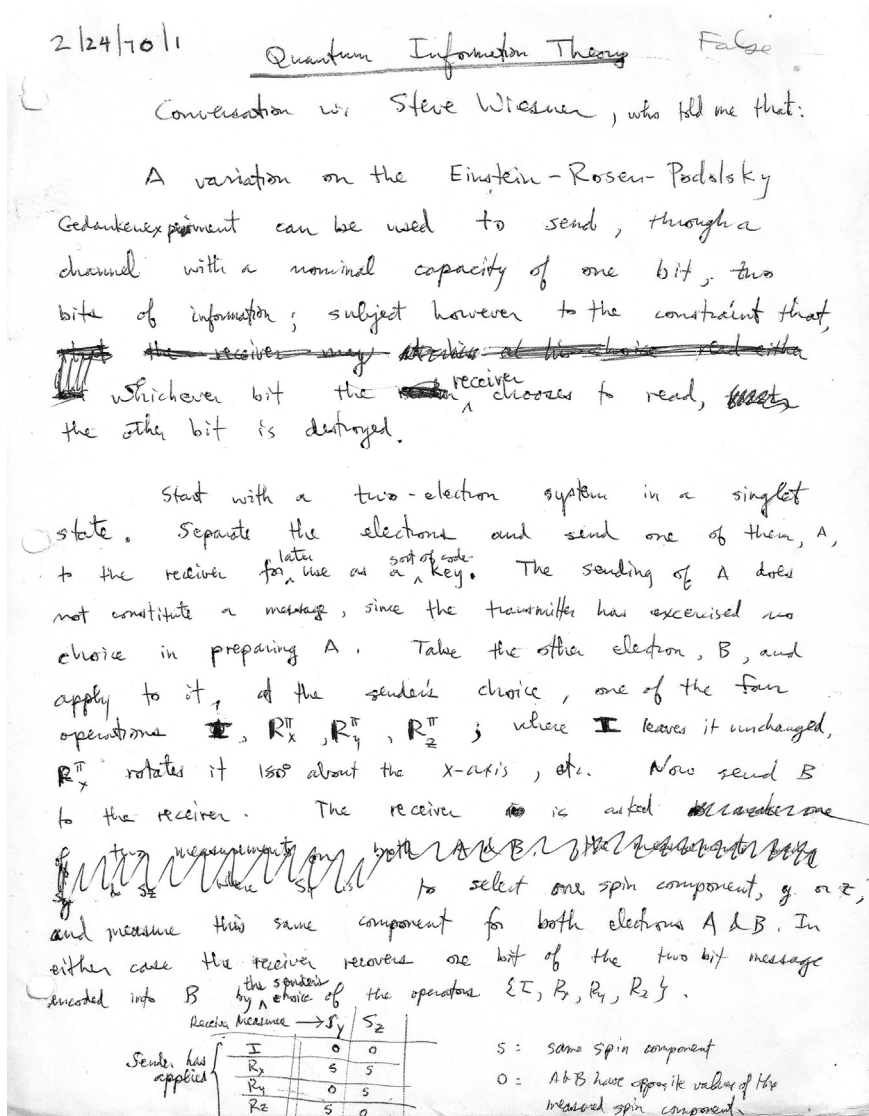 2/24/70/1
Quantum Information Theory
False
Conversation w. Steve Wiesner, who told me that:
A variation on the Einstein-Rosen-Podolsky
Gedankenexperiment can be used to send, through a
channel with a nominal capacity of one bit, two
bits of information; subject however to the constraint that,
that the receiver may at his choice read either
whichever bit the receiver chooses to read,
the other bit is destroyed.
Start with a two-electron system in a singlet
state. Separate the electrons and send one of them, A,
to the receiver for later use as a sort of code key. The sending of A does
not constitute a message, since the transmitter has excercised no
choice in preparing A. Take the other electron, B, and
apply to it, at the sender's choice, one of the four
operations I, Rxπ, Ryπ, Rzπ; where I leaves it unchanged,
Rxπ rotates it 180° about the x-axis, etc. Now send B
to the receiver. The receiver is asked
of two measurements on both A & B. The measurements
Sy Sz where
to select one spin component, y or z,
and measure this same component for both electrons A & B. In
either case the receiver recovers one bit of the two bit message
encoded into B by the sender's choice of the operators {I, Rx, Ry, Rz}.
Receiver Measures → Sy Sz
Sender has applied
I O O
Rx S S
Ry O S
Rz S O
S: same spin component
O: A&B have opposite values of the
measured spin component